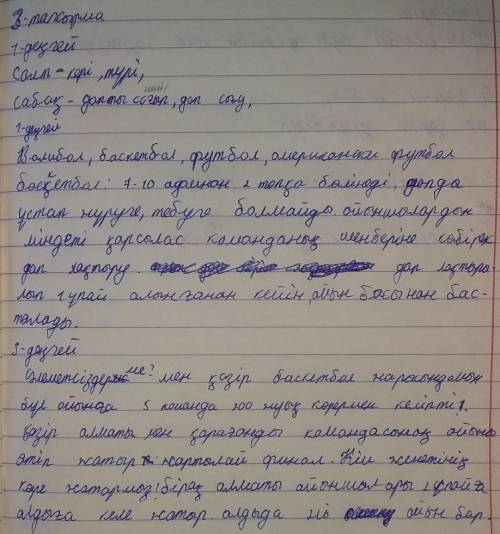 3-тапсырма
1-деңгей
Салт-көрі, түрі,
Сабақ - допты соғып, доп соғу,
2-деңгей
Валибол, баскетбол, футбол, американски футбол
баскетбол: 7-10 адамнан 2 топқа бөлінеді. допда
ұстап жүруге, тебуге болмайды. ойыншылардын
міндеті қарсылас команданың шеңберіне көбірек
доп лақтыру. доп лақтыры-
лып 1 ұпай алынғанан кейін, ойын басынан бас-
талады.
3-деңгей
Сәлеметсіздер ме? мен қәзір баскетбол жарысындамын
бұл ойынға 5 команда 200 жуық көрермен келіпті!.
Қәзір алматы мен қарағанды командасының ойыны
өтіп жатыр жартылай финал. Кім жеңетінің
көре жатармыз! бірақ алматы ойыншылары 1 ұпайға
алдыға келе жатыр. алдыда ойын бар.